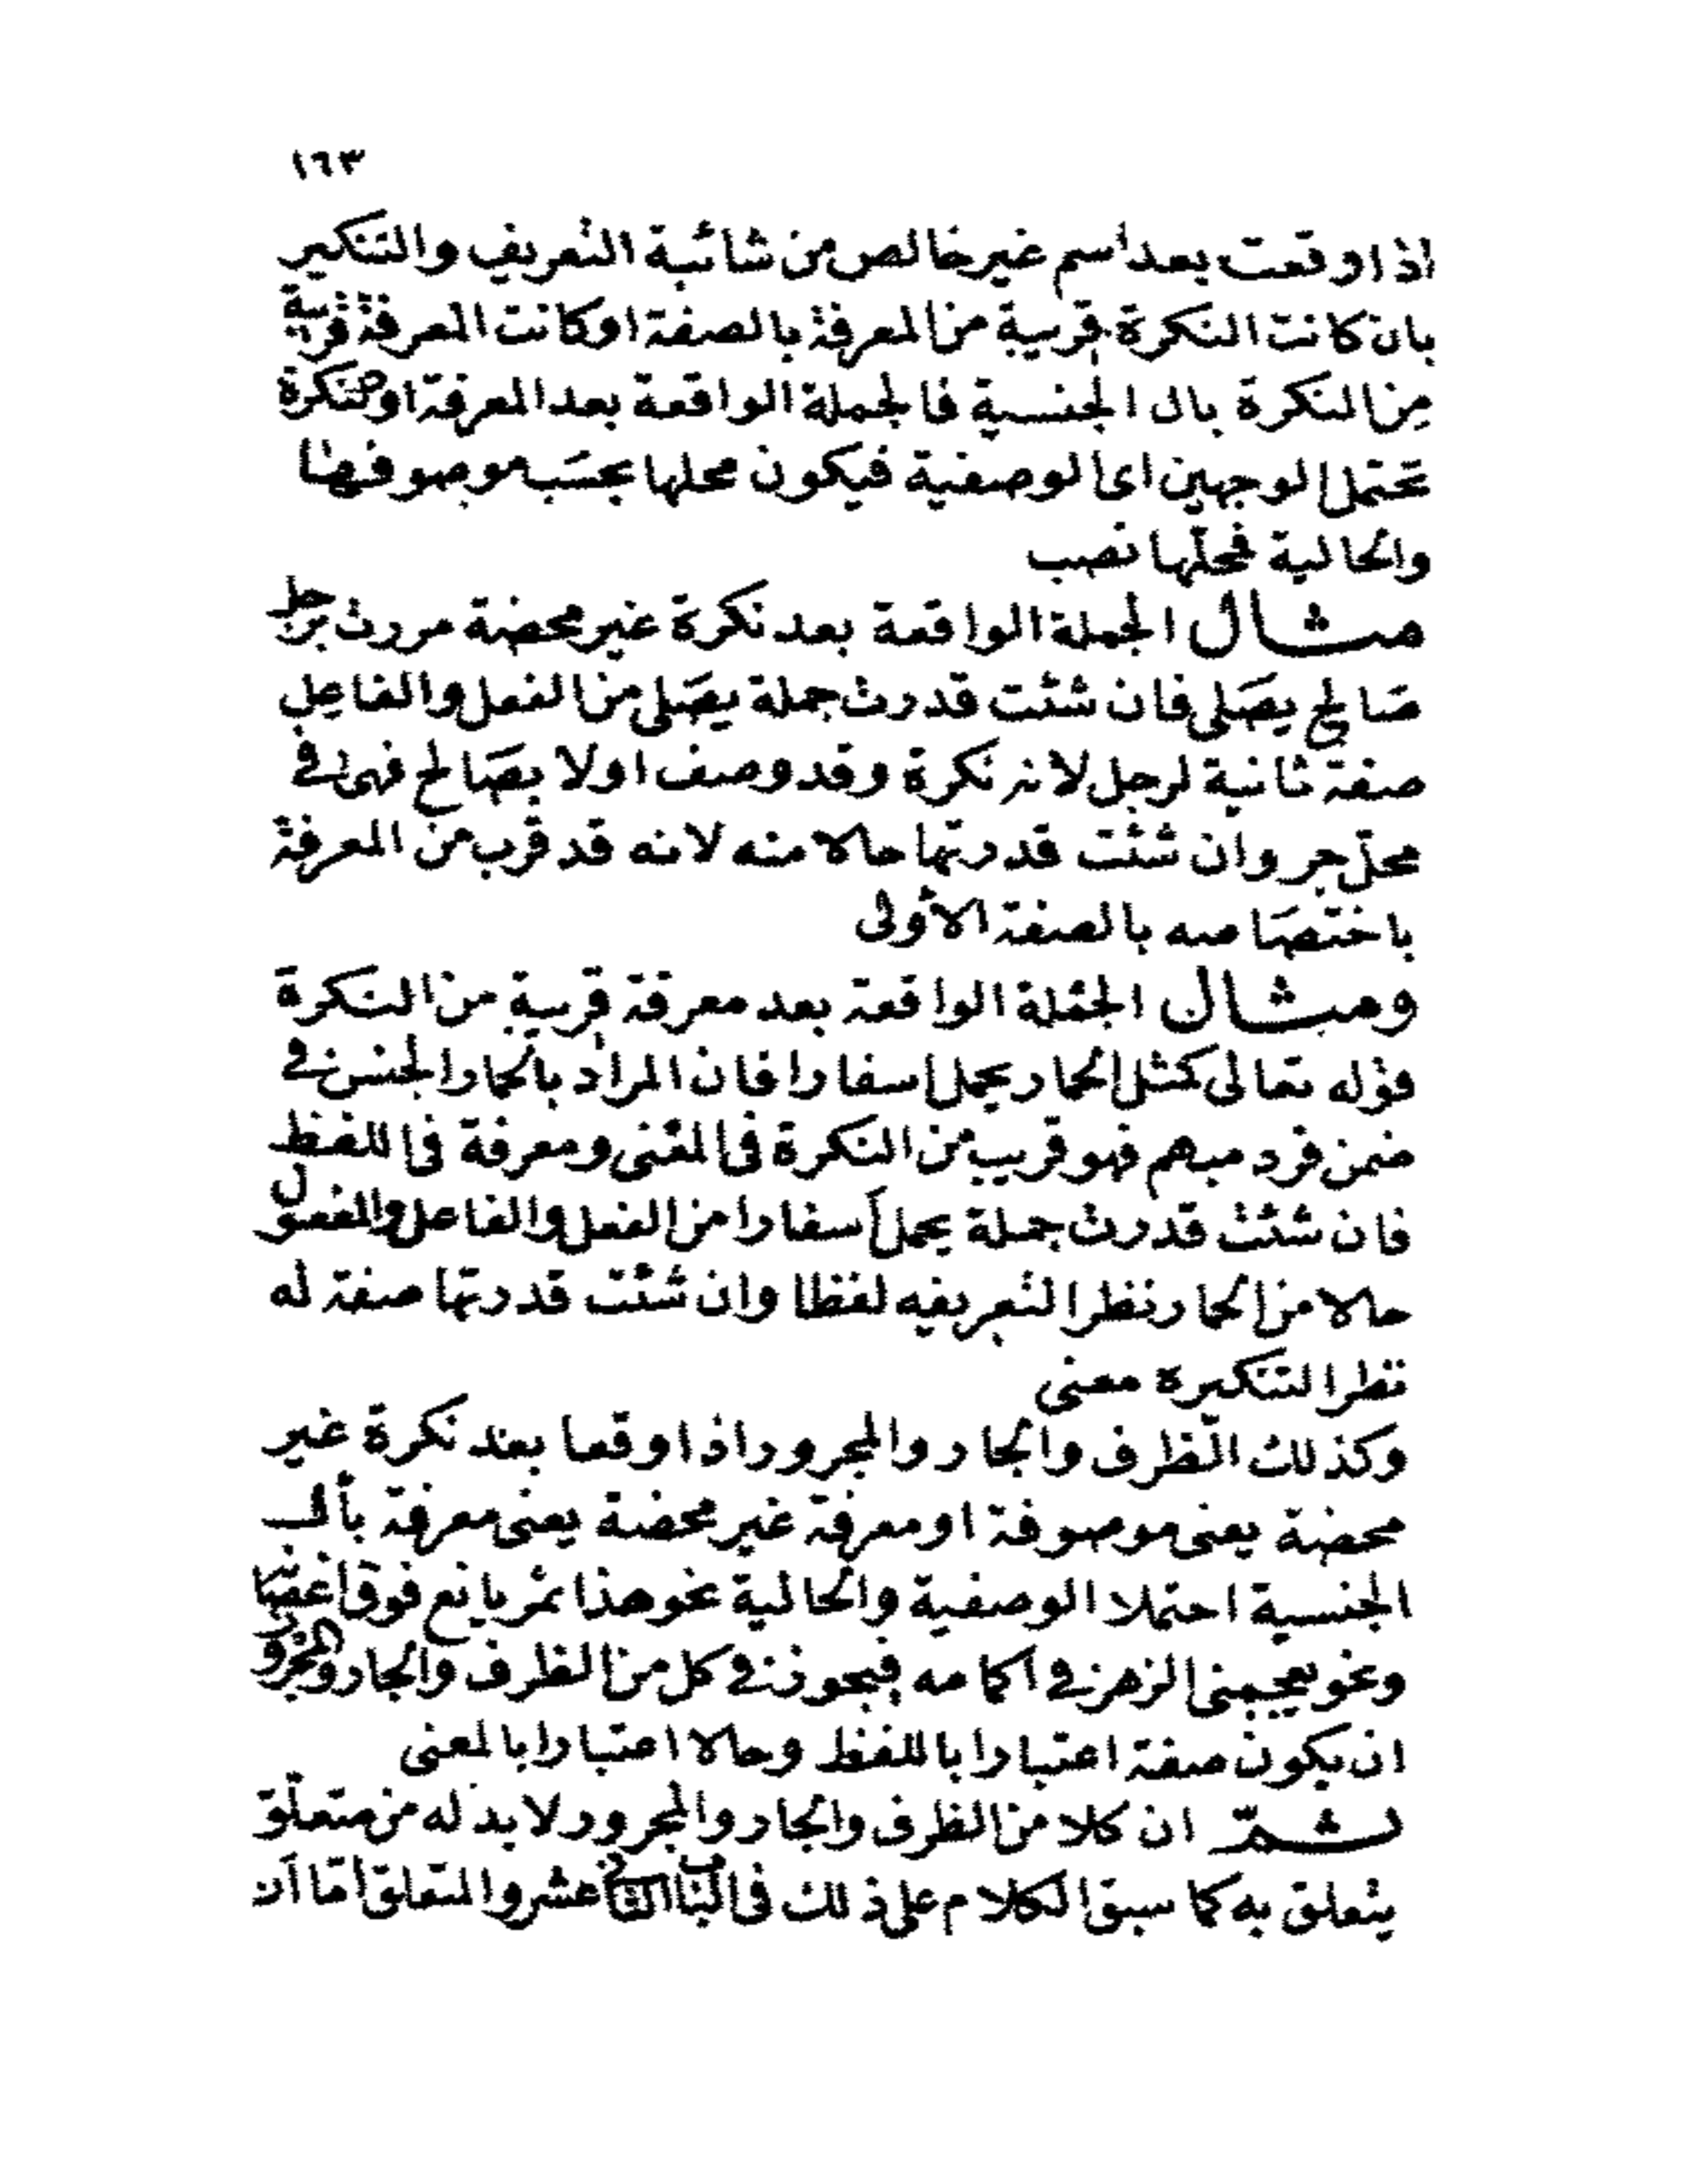 ١٦٣
اذا وقعت بعد اسم غير خالص من شائبة التعريف والتنكير
بان كانت النكرة قريبة من المعرفة بالصفة او كانت المعرفة قريبة
من النكرة بال الجنسية فالجملة الواقعة بعد المعرفة او النكرة
تحتمل الوجهين اى الوصفية فيكون محلها بحسب موصوفها
والحالية فمحلها نصب
مثال الجملة الواقعة بعد نكرة غير محضة مررت برجل
صالح يصلى فان شئت قدرت جملة يصلى من الفعل والفاعل
صفة ثانية لرجل لانه نكرة وقد وصف اولا بصالح فهى فى
محل جر وان شئت قدرتها حالا منه لانه قد قرب من المعرفة
باختصاصه بالصفة الأولى
ومثال الجملة الواقعة بعد معرفة قريبة من النكرة
قوله تعالى كمثل الحمار يحمل اسفارا فان المراد بالحمار الجنس فى
ضمن فرد مبهم فهو قريب من النكرة فى المعنى ومعرفة فى اللفظ
فان شئت قدرت جملة يحمل أسفارا من الفعل والفاعل والمفعول
حالا من الحمار نظرا لتعريفه لفظا وان شئت قدرتها صفة له
نظرا لتنكيره معنى
وكذلك الظرف والجار والمجرور اذا وقعا بعد نكرة غير
محضة يعنى موصوفة او معرفة غير محضة يعنى معرفة بأل
الجنسية احتملا الوصفية والحالية نحو هذا ثمر يانع فوق أغصانه
ونحو يعجبنى الزهر فى اكمامه فيجوز فى كل من الظرف والجار والمجرور
ان يكون صفة اعتبارا باللفظ وحالا اعتبارا بالمعنى
ثم ان كلا من الظرف والجار والمجرور لا بد له من متعلق
يتعلق به كما سبق الكلام على ذلك فى الباب الثانى عشر والمتعلق أما أن